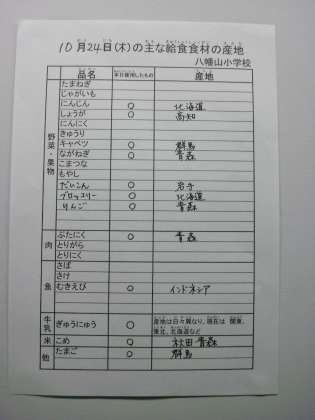 10月24日(木)の主な給食食材の産地
八幡山小学校
品名 本日使用したもの 産地
野菜・果物
たまねぎ
じゃがいも
にんじん ○ 北海道
しょうが ○ 高知
にんにく
きゅうり
キャベツ ○ 群馬
ながねぎ ○ 青森
こまつな
もやし
だいこん ○ 岩手
ブロッコリー ○ 北海道
りんご ○ 青森
肉
ぶたにく ○ 青森
とりがら
とりにく
魚
さば
さけ
むきえび ○ インドネシア
牛乳 ぎゅうにゅう ○ 産地は日々異なり、現在は 関東、
東北、北海道など
米 こめ ○ 秋田 青森
他 たまご ○ 群馬